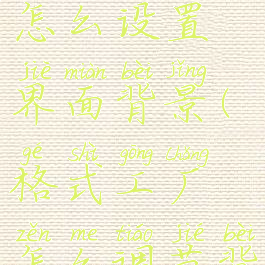 怎么设置
jiè miàn bèi jǐng
界面背景(
gé shì gōng chǎng
格式工厂
zěn me tiáo jié bèi
怎么调节背